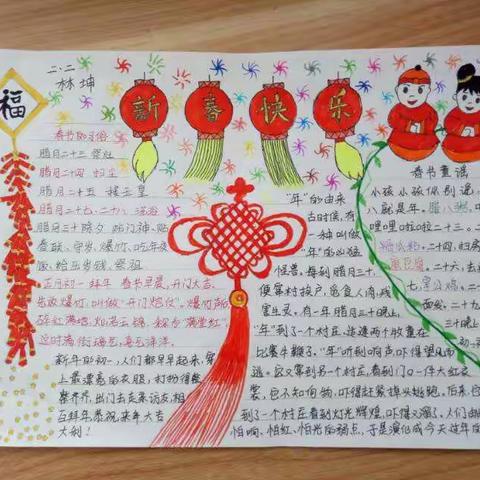 福
二.二
林坤
新春快乐
春节的习俗
腊月二十三 祭灶
腊月二十四 扫尘
腊月二十五 接玉皇
腊月二十七、二十八 洗浴
腊月三十除夕 贴门神、贴
春联、守岁、爆竹、吃年夜
饭、给压岁钱、祭祖
正月初一 拜年 春节早晨，开门大吉，
先放爆竹，叫做“开门炮仗”。爆竹声后，
碎红满地，灿若云锦，称为“满堂红”。
这时满街瑞气，喜气洋洋。
新年的初一，人们都早早起来，穿
上最漂亮的衣服，打扮得整
整齐齐，出门去走亲访友，相
互拜年，恭祝来年大吉
大利！
“年”的由来
古时候，有
一种叫做
“年”的凶猛
怪兽，每到腊月三十，
便窜村挨户，觅食人肉，残
害生灵。有一年腊月三十晚上，
“年”到了一个村庄，适逢两个牧童在
比赛牛鞭子。“年”听到响声，吓得望风而
逃。它又窜到另一个村庄，看到门口一件大红衣
裳，它不知何物，吓得赶紧掉头逃跑。后来，它
到了一个村庄看到灯光辉煌，吓得又溜了。人们由
怕响、怕红、怕光的弱点，于是演化成今天过年的
春节童谣
小孩小孩你别馋，过
八就是年，腊八粥，
哩哩啦啦二十三。二
糖瓜粘，二四，扫房
二十六，去
二十九
三十晚上